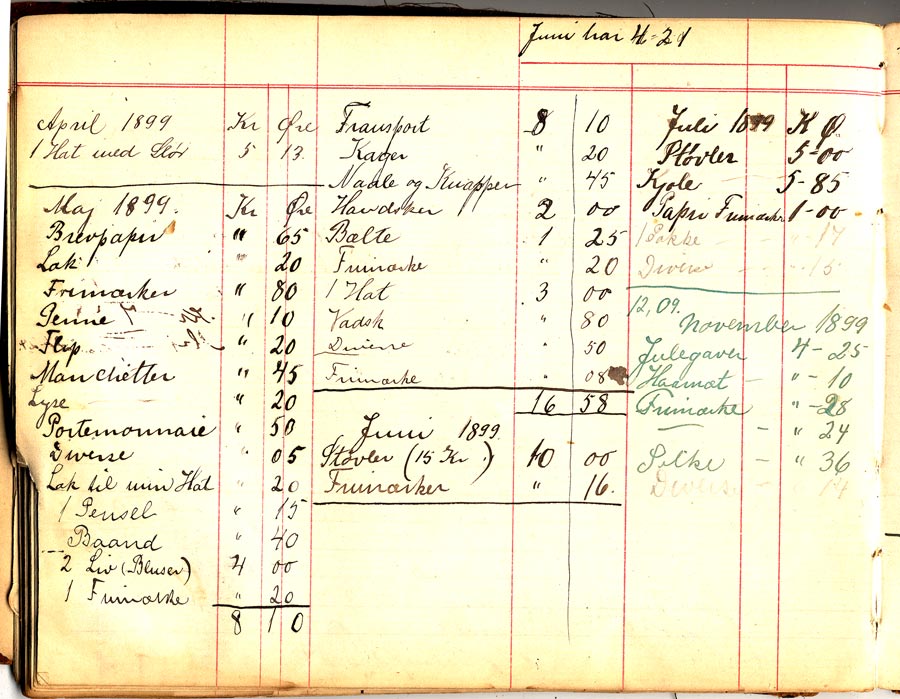 Juni har 4-21
April 1899 Kr Øre
1 Hat med Slør 5 13
Maj 1899. Kr Øre
Brevpapir " 65
Lak " 20
Frimærker " 80
Penne " 10
Flip " 20
Manchetter " 45
Lyse " 20
Portemonnaie " 50
Diverse " 05
Lak til min Hat " 20
1 Pensel " 15
Baand " 40
2 Liv (Bluser) 4 00
1 Frimærke " 20
8 10
Transport 8 10
Kager " 20
Naale og Knapper " 45
Handsker 2 00
Bælte 1 25
Frimærke " 20
1 Hat 3 00
Vadsk " 80
Diverse " 50
Frimærke " 08
16 58
Juni 1899
Støvler (15 Kr) 10 00
Frimærker " 16.
Juli 1899 K Ø
Støvler 5-00
Kjole 5-85
Papir Frimærke 1-00
1 Pakke - - 17
Diverse - - 15
12,09.
November 1899
Julegaver 4-25
Haarnet - "-10
Frimærke "-28
- " 24
Silke - " 36
Diverse - 14